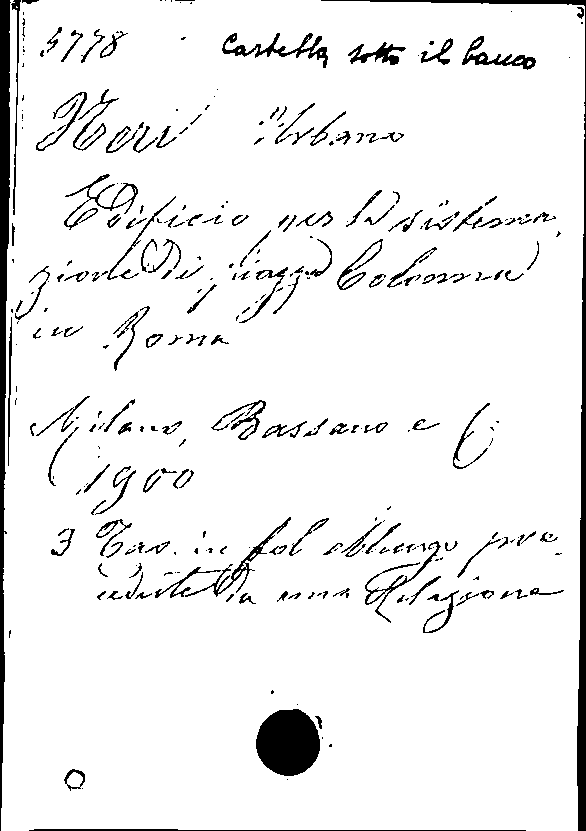 5778 Cartella sotto il banco
Neri Urbano
Edificio per la sistema-
zione di piazza Colonna
in Roma
Milano, Bassano e C.
1900
3 Tav. in fol oblungo pre-
cedute da una Relazione